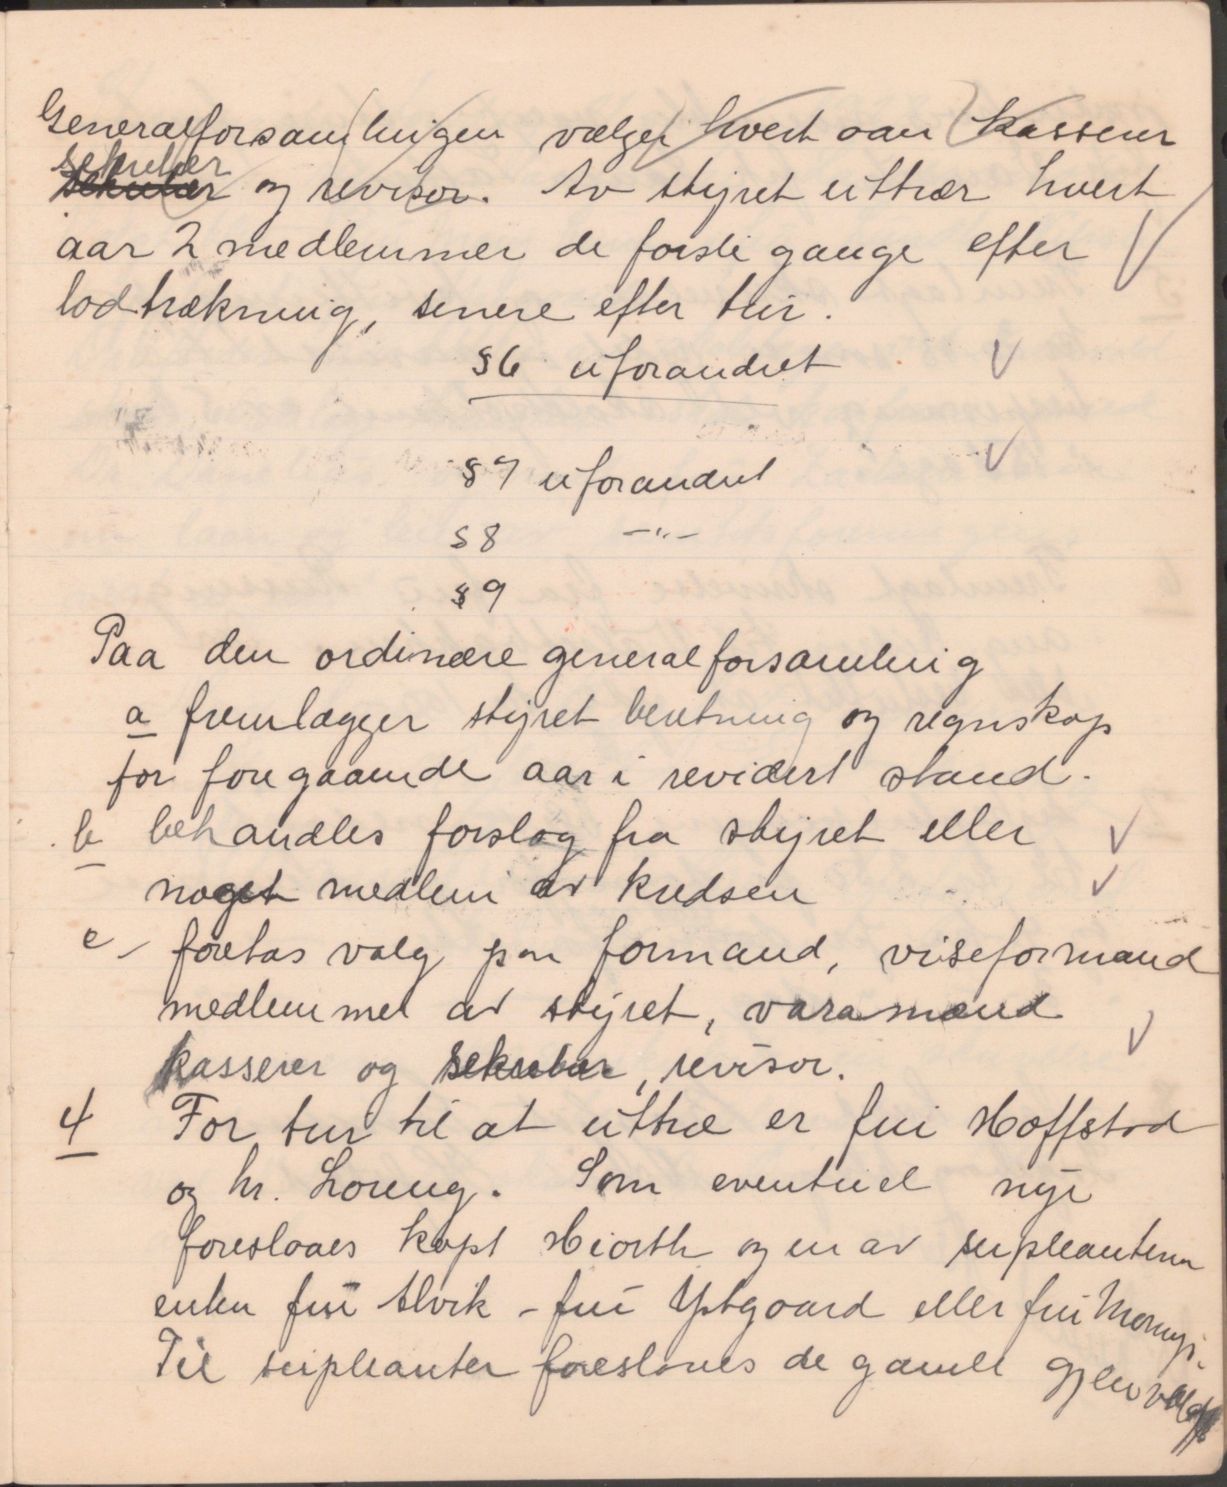 Generalforsamlingen vælger hvert aar kasserer
sekretær
sekretær og revisor. Av styret uttrær hvert
aar 2 medlemmer de første gange efter
lodtrækning, senere efter tur.
§6 uforandret
§7 uforandret
§8 -"-
§9
Paa den ordinære generalforsamling
a fremlægger styret beretning og regnskap
for foregaaende aar i revidert stand.
b behandles forslag fra styret eller
noget medlem av kredsen
c foretas valg paa formand, viseformand
medlemmer av styret, varamænd
kasserer og sekretær, revisor.
4 For tur til at uttræ er fru Hoffstad
og hr. Loreng. Som eventuel nye
foreslaaes kapt Hiorth og en av supleanterne
enten fru Alvik - fru Ystgaard eller fru
Til supleanter foreslaaes de gamle gjenvalgt